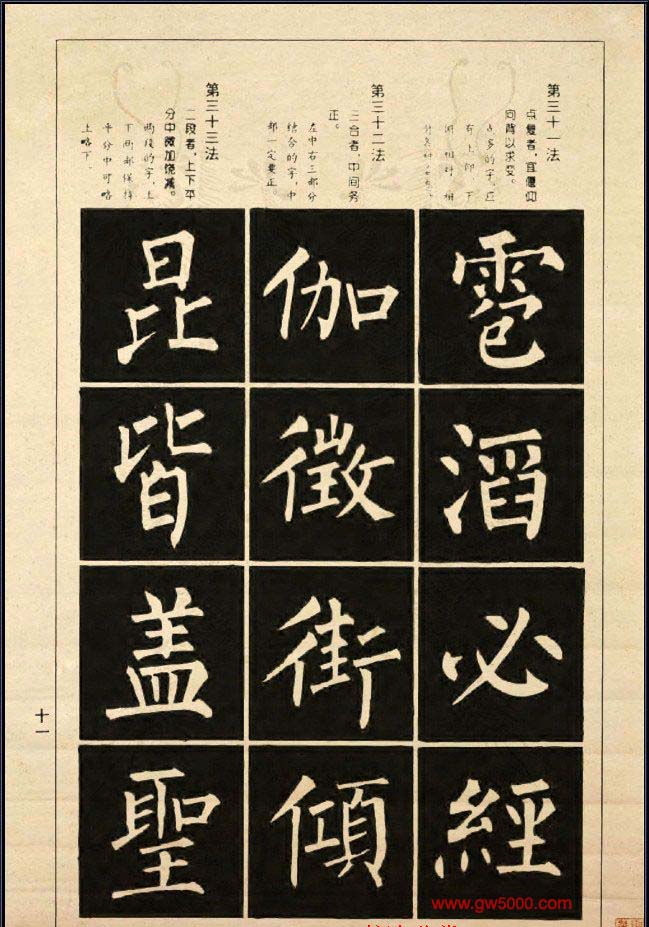 第三十一法
点复者，宜偃仰
向背以求变。
点多的字，应
有上仰、下
俯 相对 相
雹
滔
必
經
第三十二法
三合者，中间务
正。
左中右三部分
结合的字，中
部一定要正。
伽
徵
街
傾
第三十三法
二段者，上下平
分中微加饶减。
两段的字，上
下两部保持
平分中可略
上略下
昆
皆
盖
聖
十一
www.gw5000.com